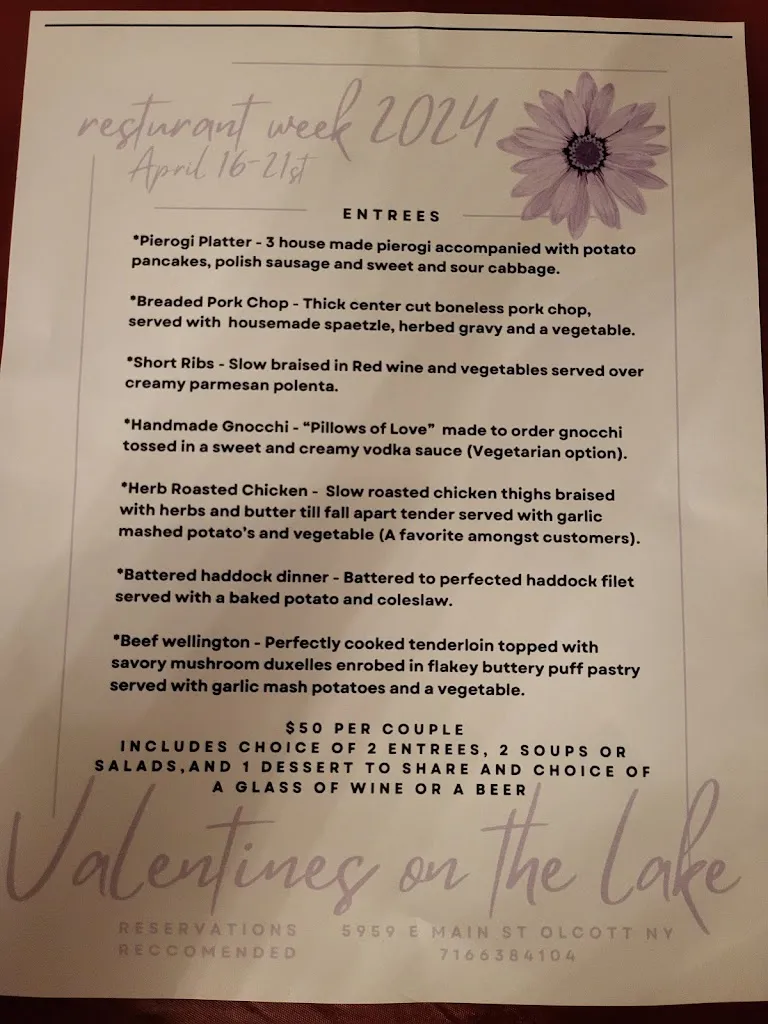 resturant week 2024
April 16-21st
ENTREES
*Pierogi Platter - 3 house made pierogi accompanied with potato
pancakes, polish sausage and sweet and sour cabbage.
*Breaded Pork Chop - Thick center cut boneless pork chop,
served with housemade spaetzle, herbed gravy and a vegetable.
*Short Ribs - Slow braised in Red wine and vegetables served over
creamy parmesan polenta.
*Handmade Gnocchi - “Pillows of Love” made to order gnocchi
tossed in a sweet and creamy vodka sauce (Vegetarian option).
*Herb Roasted Chicken - Slow roasted chicken thighs braised
with herbs and butter till fall apart tender served with garlic
mashed potato's and vegetable (A favorite amongst customers).
*Battered haddock dinner - Battered to perfected haddock filet
served with a baked potato and coleslaw.
*Beef wellington - Perfectly cooked tenderloin topped with
savory mushroom duxelles enrobed in flakey buttery puff pastry
served with garlic mash potatoes and a vegetable.
$50 PER COUPLE
INCLUDES CHOICE OF 2 ENTREES, 2 SOUPS OR
SALADS,AND 1 DESSERT TO SHARE AND CHOICE OF
A GLASS OF WINE OR A BEER
Valentines on the Lake
RESERVATIONS
RECCOMENDED
5959 E MAIN ST OLCOTT NY
7166384104